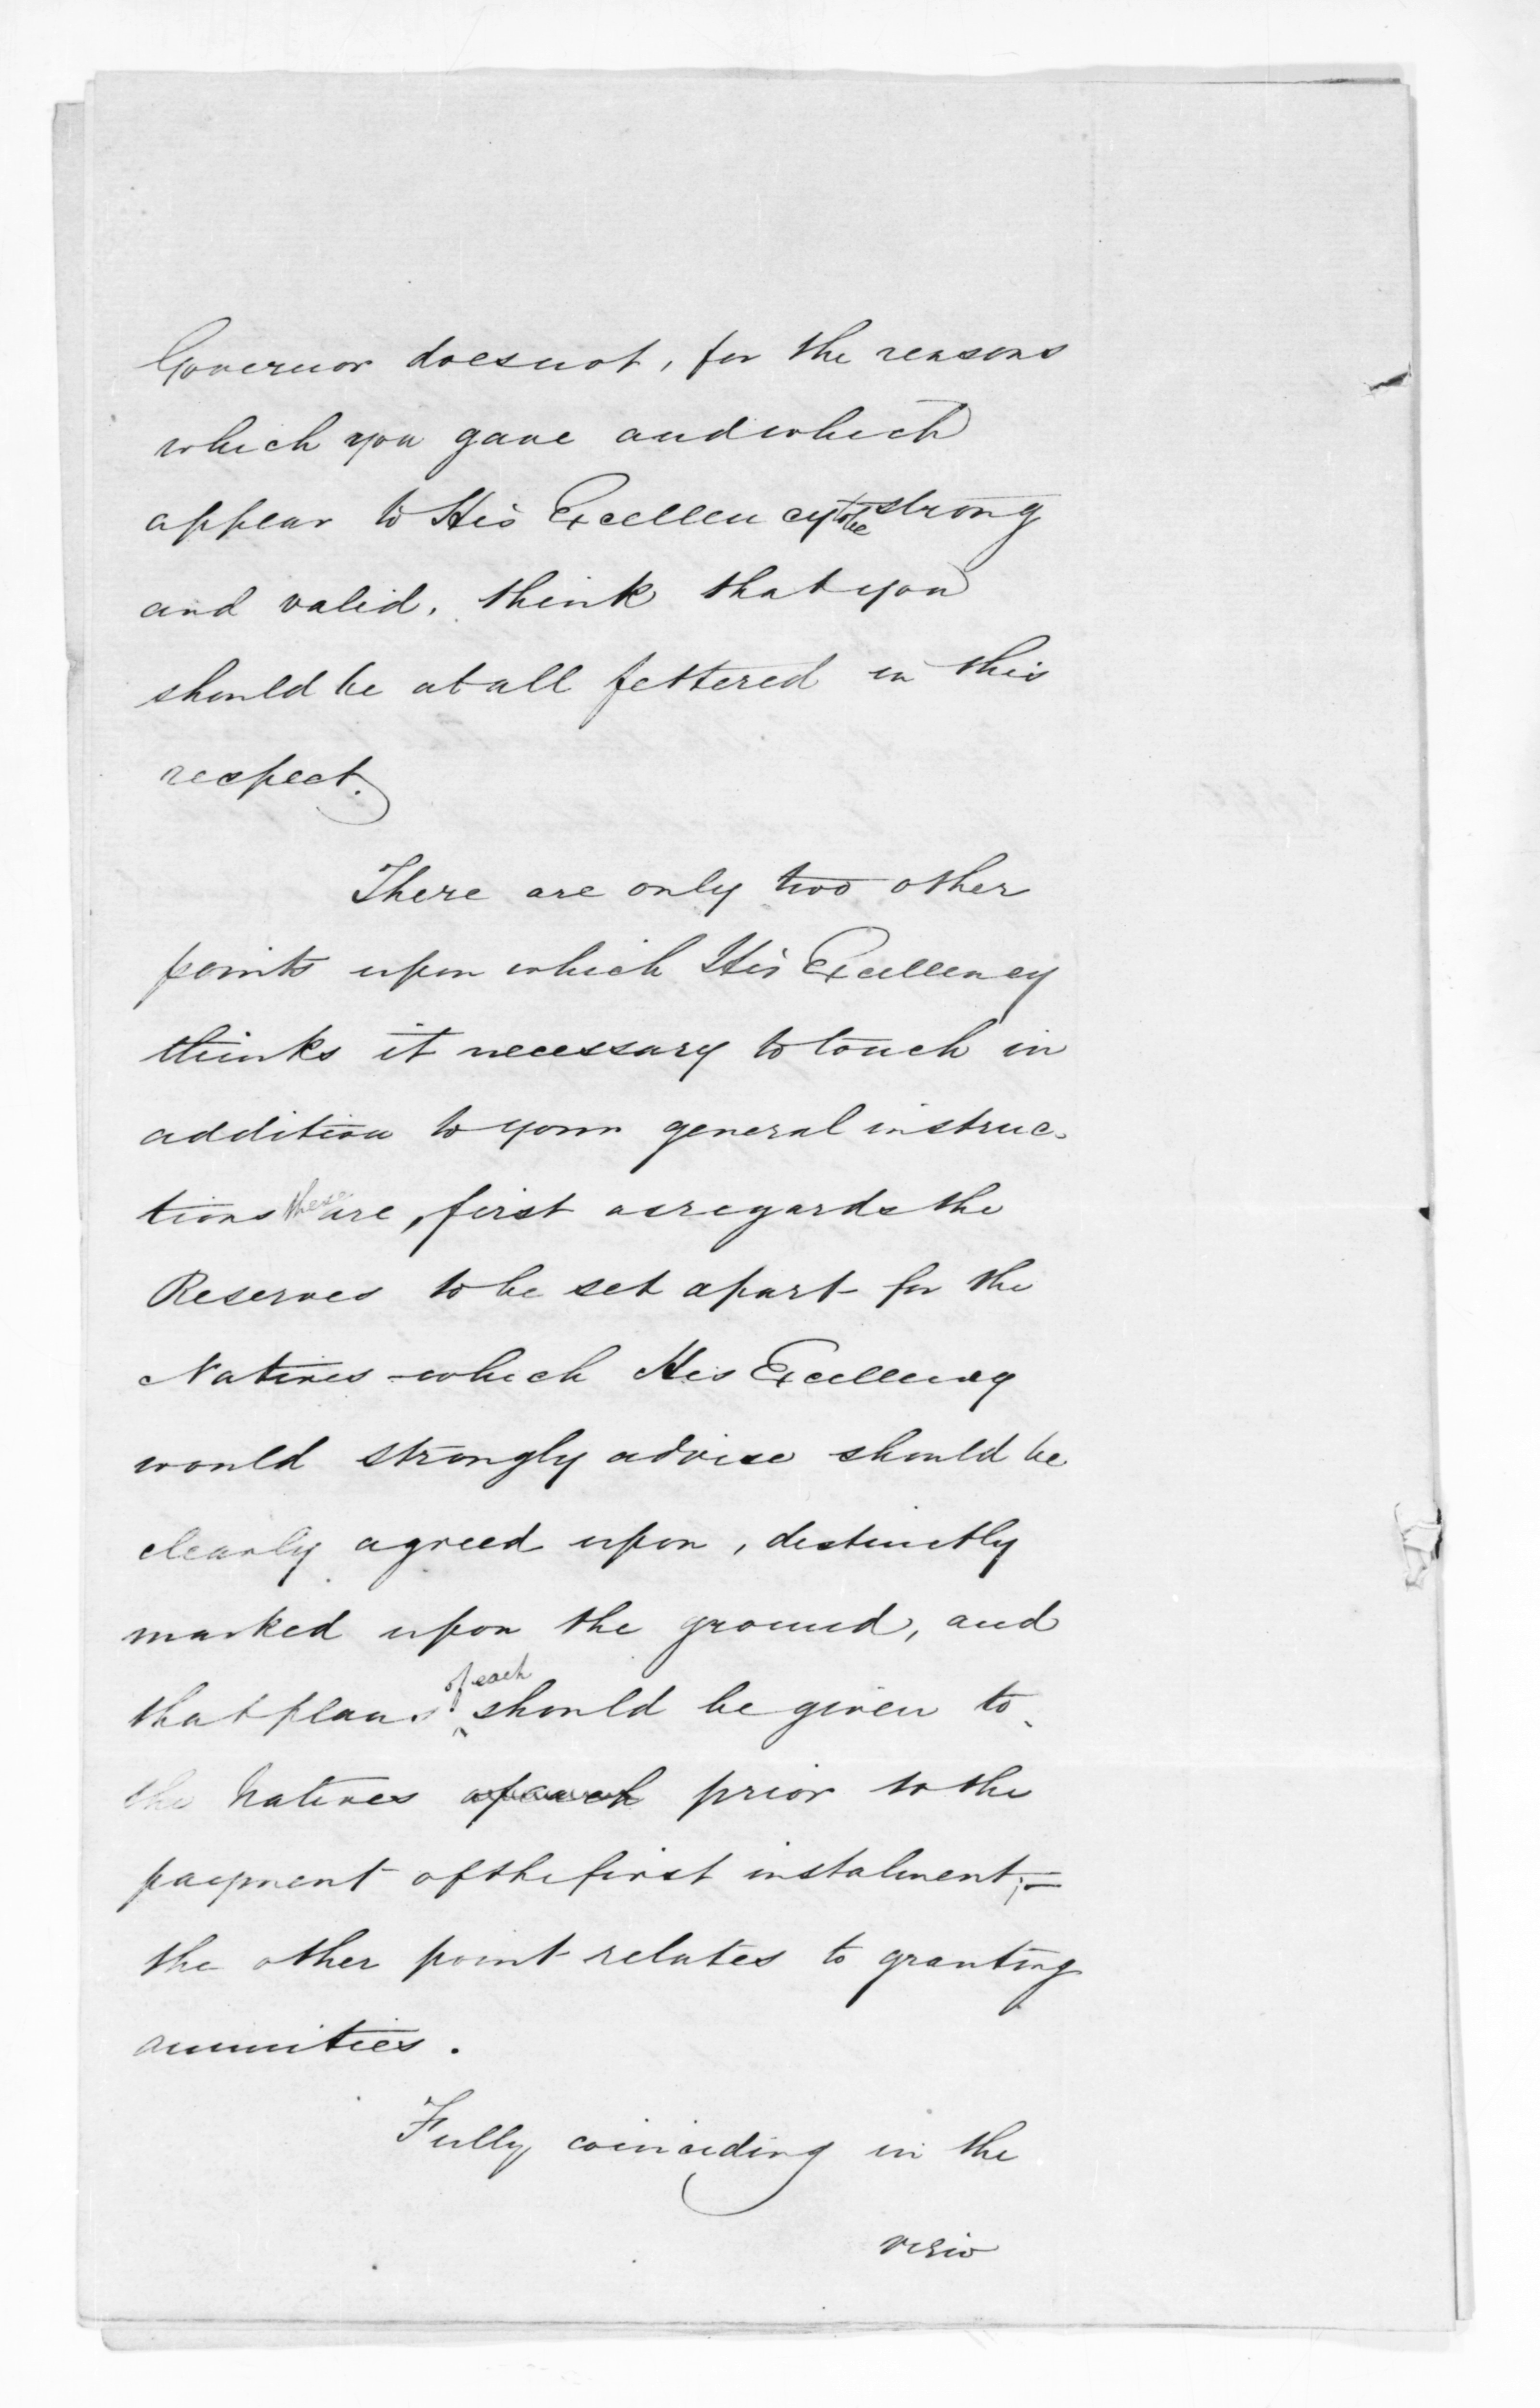 Governor does not, for the reasons
which you gave and which
appear to His Excellency to be strong
and valid, think that you
should be at all fettered in this
respect.
There are only two other
points upon which His Excellency
thinks it necessary to touch in
addition to your general instruc-
tions these are, first as regards the
Reserves to be set apart for the
Natives which His Excellency
would strongly advise should be
clearly agreed upon, distinctly
marked upon the ground, and
that plans of each should be given to
the Natives prior to the
payment of the first instalment;=
the other point relates to granting
annuities.
Fully coinciding in the
view